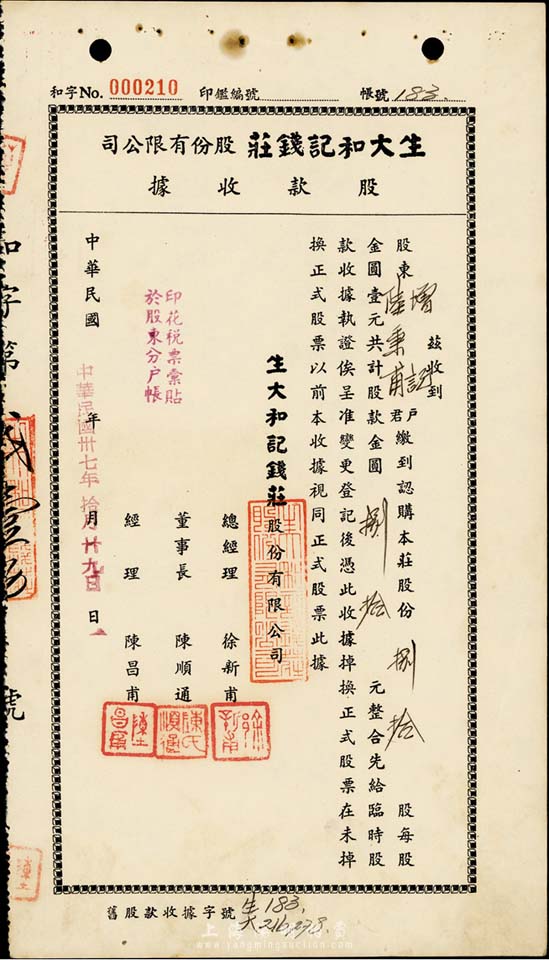 和字No. 000210 印鑑編號 帳號 183.
生大和記錢莊股份有限公司
股款收據
茲收到
股東增陸秉甫記戶君繳到認購本莊股份捌拾股每股
金圓壹元共計股款金圓捌拾元整合先給臨時股
款收據執證俟呈准變更登記後憑此收據掉換正式股票在未掉
換正式股票以前本收據視同正式股票此據
生大和記錢莊股份有限公司
總經理 徐新甫
董事長 陳順通
經理 陳昌甫
印花稅票彙貼
於股東分戶帳
中華民國 年 月 日
中華民國卅七年拾月廿九日
和字第 號
舊股款收據字號 生183. 大216,278.
上海陽明拍賣
www.yangmingauction.com